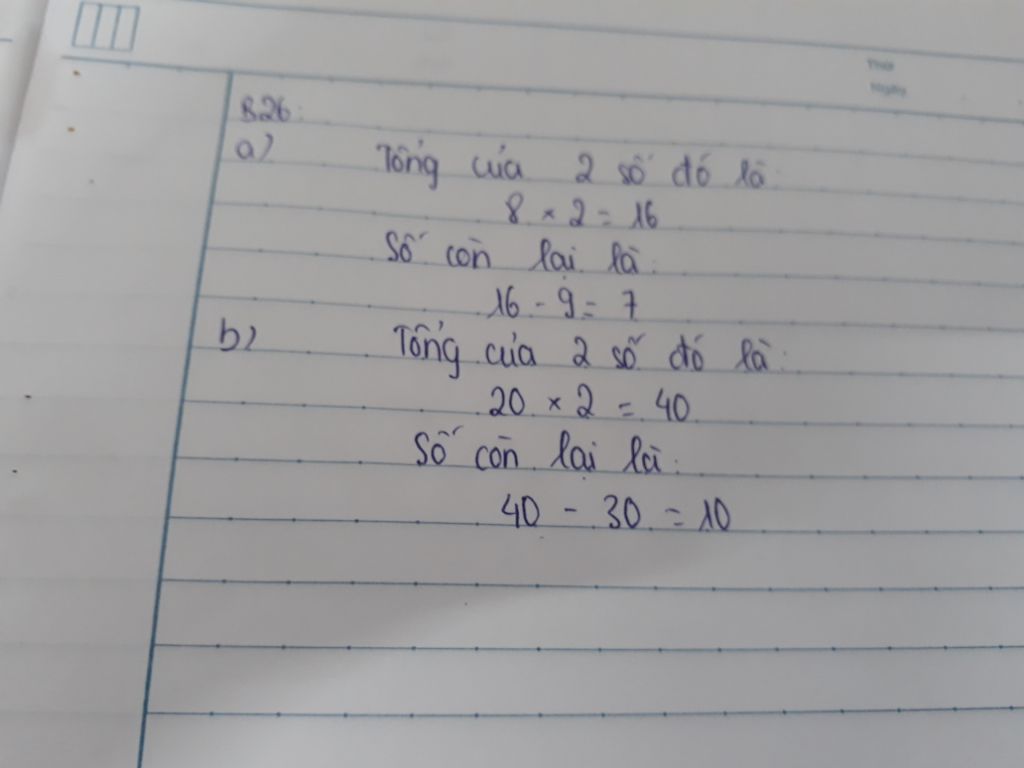 Thứ
Ngày
B26:
a) Tổng của 2 số đó là:
8 × 2 = 16
Số còn lại là:
16 - 9 = 7
b) Tổng của 2 số đó là:
20 × 2 = 40
Số còn lại là:
40 - 30 = 10